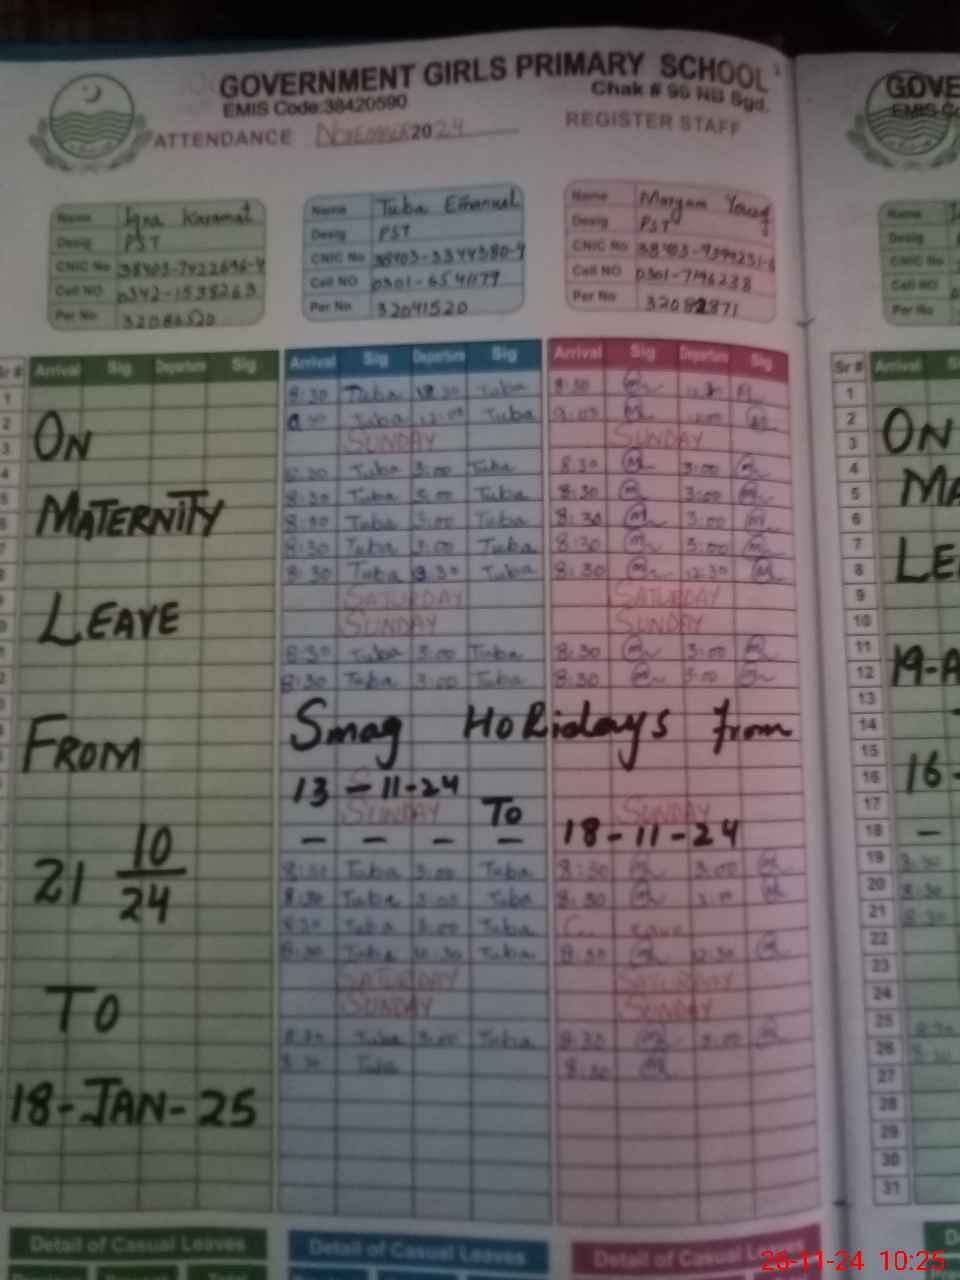 GOVERNMENT GIRLS PRIMARY SCHOOL
EMIS Code:38420590
Chak # 96 NB Sgd.
ATTENDANCE November 2024 REGISTER STAFF
Name Iqra Karamat
Desig PST
CNIC No 38403-7422696-4
Cell NO 0342-1538263
Per No 32086520
Name Tuba Emanuel
Desig PST
CNIC No 38403-3344380-4
Cell NO 0301-6541179
Per No 32041520
Name Maryam
Desig PST
CNIC No
Cell NO 0301-7196238
Per No 32082871
Sr # Arrival Sig Departure Sig Arrival Sig Departure Sig Arrival Sig Departure Sig
1 8:30 Tuba 12:30 Tuba 8:30
2 Tuba 12:00 Tuba 9:00 12:00
3 SUNDAY SUNDAY
4 8:30 Tuba 3:00 Tuba 8:30 3:00
5 8:30 Tuba 3:00 Tuba 8:30 3:00
6 8:30 Tuba 3:00 Tuba 8:30 3:00
7 8:30 Tuba 3:00 Tuba 8:30 3:00
8 8:30 Tuba Tuba 8:30 12:30
9 SATURDAY SATURDAY
10 SUNDAY SUNDAY
11 8:30 Tuba 3:00 Tuba 8:30 3:00
12 8:30 Tuba 3:00 Tuba 8:30 3:00
Smog HoLidays from
13-11-24
SUNDAY SUNDAY
To
- - - - 18-11-24
8:30 Tuba 3:00 Tuba 8:30 3:00
8:30 Tuba 3:00 Tuba 8:30 3:00
8:30 Tuba 3:00 Tuba
8:30 Tuba 12:30 Tuba 8:30 12:30
SATURDAY SATURDAY
SUNDAY SUNDAY
8:30 Tuba 3:00 Tuba 8:30 3:00
8:30 Tuba 8:30
ON
MATERNITY
LEAVE
FROM
21 10/24
TO
18-JAN-25
Detail of Casual Leaves
Detail of Casual Leaves
Detail of Casual Leaves
GOVE
EMIS Co
Name
Desig
CNIC No
Cell NO
Per No
Sr # Arrival
1
2
3
4
5
6
7
8
9
10
11
12
13
14
15
16
17
18
19
20
21
22
23
24
25
26
27
28
29
30
31
ON
MA
LE
19-A
16-
-
8:30
8:30
8:30
8:30
26-11-24 10:25